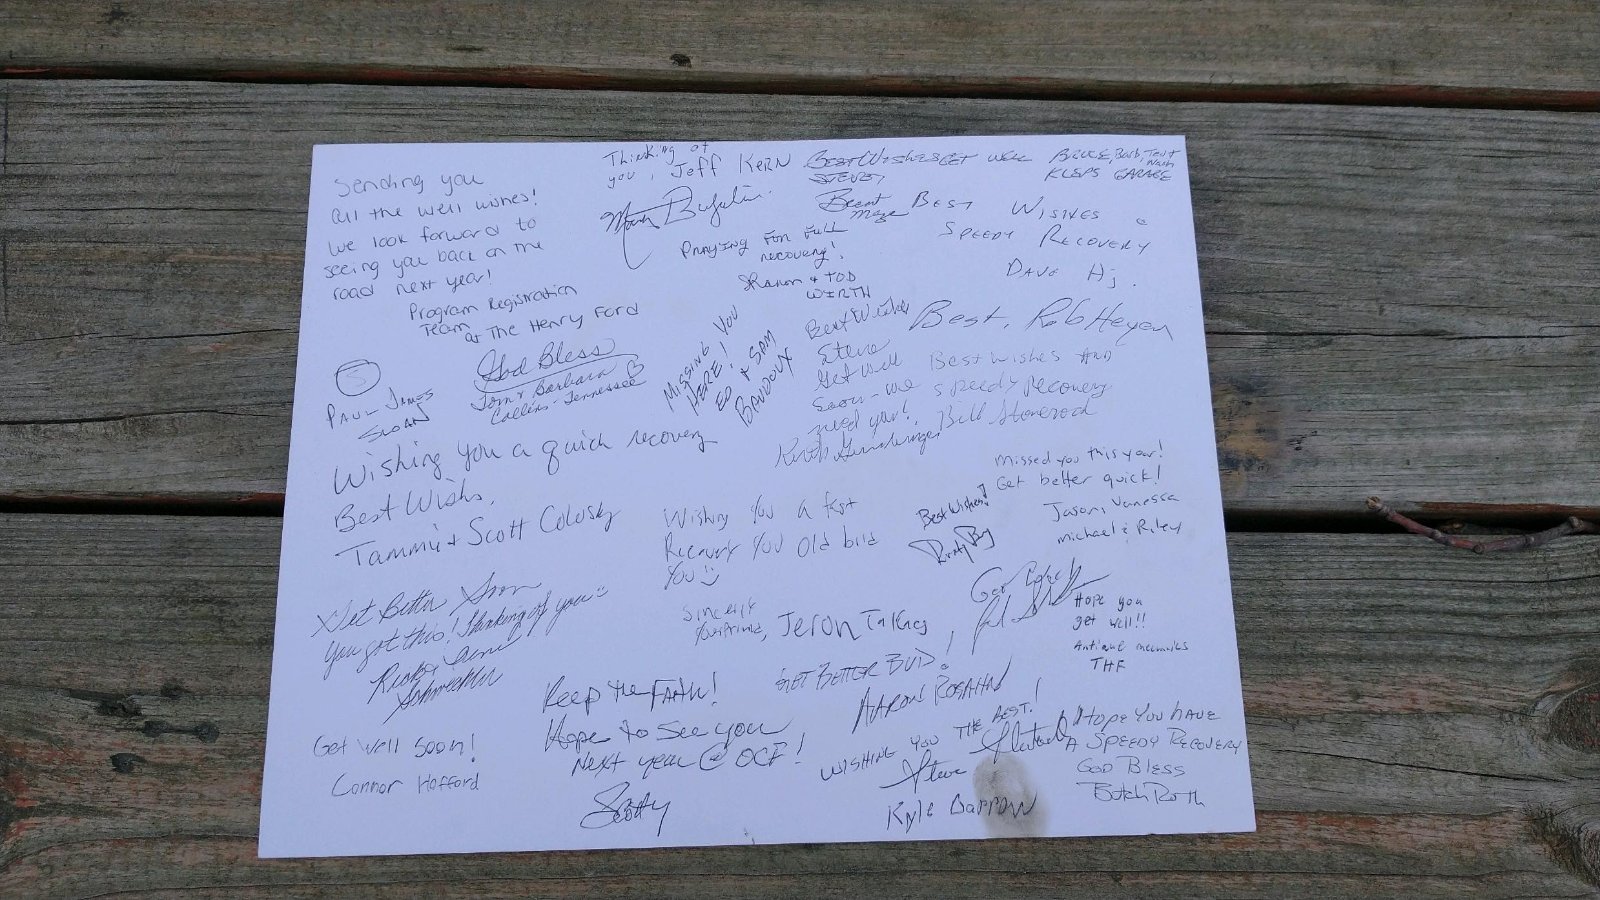 Sending you
all the well wishes!
We look forward to
seeing you back on the
road next year!
Program Registration
Team at The Henry Ford
Thinking of
you, Jeff Kern
Best Wishes Get Well
Steve,
Brent
BRUCE, Barb, Ted +
KLEPS GARAGE
Praying for full
recovery!
Sharon & TOD
WIRTH
Best Wishes
Speedy Recovery
Dave H.
Best, Rob Heyen
MISSING YOU
HERE!
ED & SAM
BAUDOUX
Best Wishes
Steve
Get Well
Soon - we
need you!
Best Wishes And
Speedy Recovery
Bill Stonerod
5
Paul James
Sloan
God Bless
Tom & Barbara
Collins - Tennessee
Wishing you a quick recovery
Best Wishes,
Tammi & Scott Colosky
Wishing You a fast
Recovery You Old bird
You
Sincerly
Your Friend, Jeron Talkney
Best Wishes!
Missed you this year!
Get better quick!
Jason, Vanessa
Michael & Riley
Get Better Soon
You got this! Thinking of you
Hope you
get well!!
Antique
THF
Get Better Bud!
Aaron
Keep the Faith!
Hope to See you
Next year @ OCF!
Scotty
Get Well Soon!
Connor Hofford
Wishing you the best!
Steve
Kyle Darrow
Hope You have
A Speedy Recovery
God Bless
Butch Roth